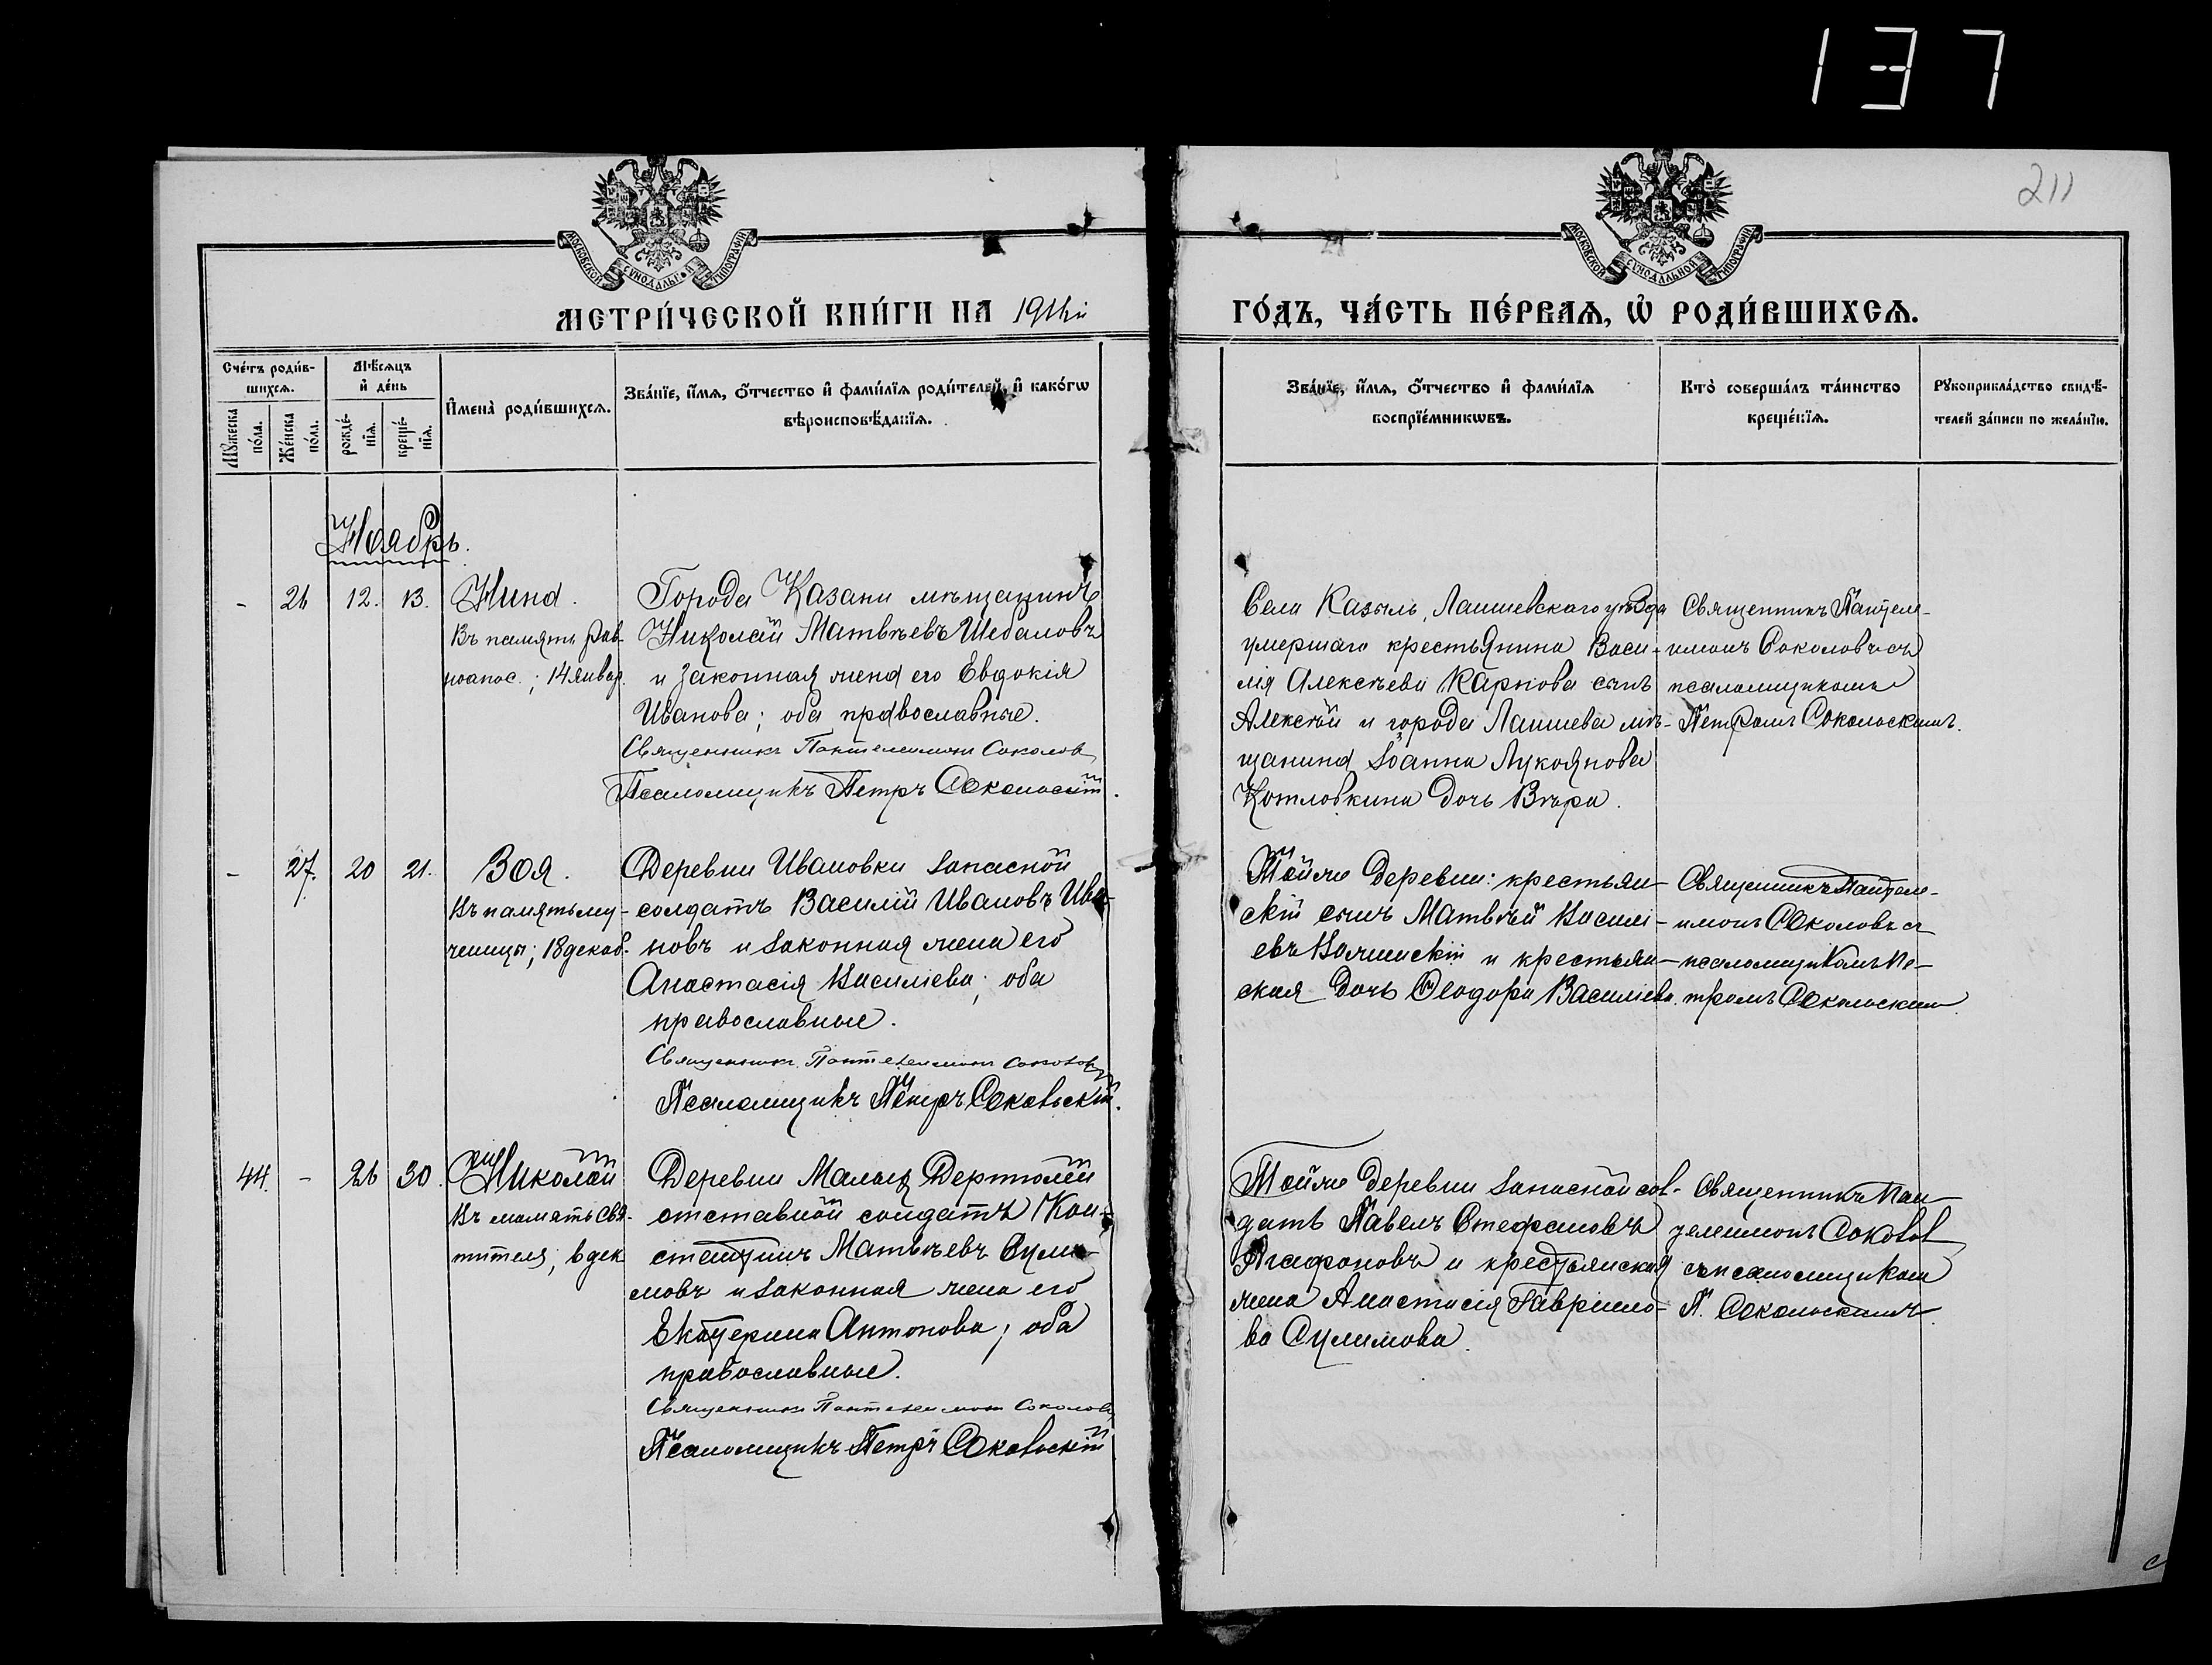 137
211
МОСКОВСКОЙ СУНОДАЛЬНОЙ ТИПОГРАФІИ
МОСКОВСКОЙ СУНОДАЛЬНОЙ ТИПОГРАФІИ
МЕТРИ́ЧЕСКОЙ КНИ́ГИ НА 1911й
ГО́ДЪ, ЧА́СТЬ ПЕ́РВАѦ, Ѽ РОДИ́ВШИХСѦ.
Сче́тъ роди́в-
шихсѧ.
Мꙋ́жеска
по́ла.
Же́нска
по́ла.
Мѣ́сѧцъ
и҆ де́нь
рожде́-
нїѧ.
креще́-
нїѧ.
И҆мена̀ роди́вшихсѧ.
Зва́нїе, и҆́мѧ, ѻ҆́тчество и҆ фами́лїѧ роди́телей, и҆ како́гѡ
вѣроисповѣ́данїѧ.
Зва́нїе, и҆́мѧ, ѻ҆́тчество и҆ фами́лїѧ
воспрїе́мникѡвъ.
Кто̀ соверша́лъ та́инство
креще́нїѧ.
Рꙋкоприкла́дство свидѣ́-
телей за́писи по жела́нїю.
Ноябрь.
- 26 12. 13. Нина.
Въ память рав-
ноапос.; 14 январ.
Города Казани мѣщанинъ
Николай Матвѣевъ Шебаловъ
и законная жена его Евдокія
Иванова; оба православные.
Священникъ Пантелеимонъ Соколовъ
Псаломщикъ Петръ Сокольскій.
Села Казыль, Лаишевскаго уѣзда
умершаго крестьянина Васи-
лія Алексѣева Карпова сынъ
Алексѣй и города Лаишева мѣ-
щанина Іоанна Лукоянова
Котловкина дочь Вѣра.
Священникъ Пантеле-
имонъ Соколовъ съ
псаломщикомъ
Петромъ Сокольскимъ.
- 27. 20 21. Зоя.
Въ память му-
ченицы; 18 декаб.
Деревни Ивановки запасной
солдатъ Василій Ивановъ Ива-
новъ и законная жена его
Анастасія Василіева; оба
православные.
Священникъ Пантелеимонъ Соколовъ
Псаломщикъ Петръ Сокольскій.
Той же деревни: крестьян-
скій сынъ Матвѣй Василі-
евъ и крестьян-
ская дочь Ѳеодора Василіева.
Священникъ Пантеле-
имонъ Соколовъ съ
псаломщикомъ Пе-
тромъ Сокольскимъ.
44. - 26 30. Николай
Въ память свя-
тителя; 6 дек.
Деревни Малыхъ Дертюлей
отставной солдатъ Кон-
стантинъ Матвѣевъ Сули-
мовъ и законная жена его
Екатерина Антонова; оба
православные.
Священникъ Пантелеимонъ Соколовъ
Псаломщикъ Петръ Сокольскій
Той же деревни запасной сол-
датъ Павелъ Стефановъ
Агафоновъ и крестьянская
жена Анастасія Гаврило-
ва Сулимова.
Священникъ Пан-
телеимонъ Соколовъ
съ псаломщикомъ
П. Сокольскимъ.